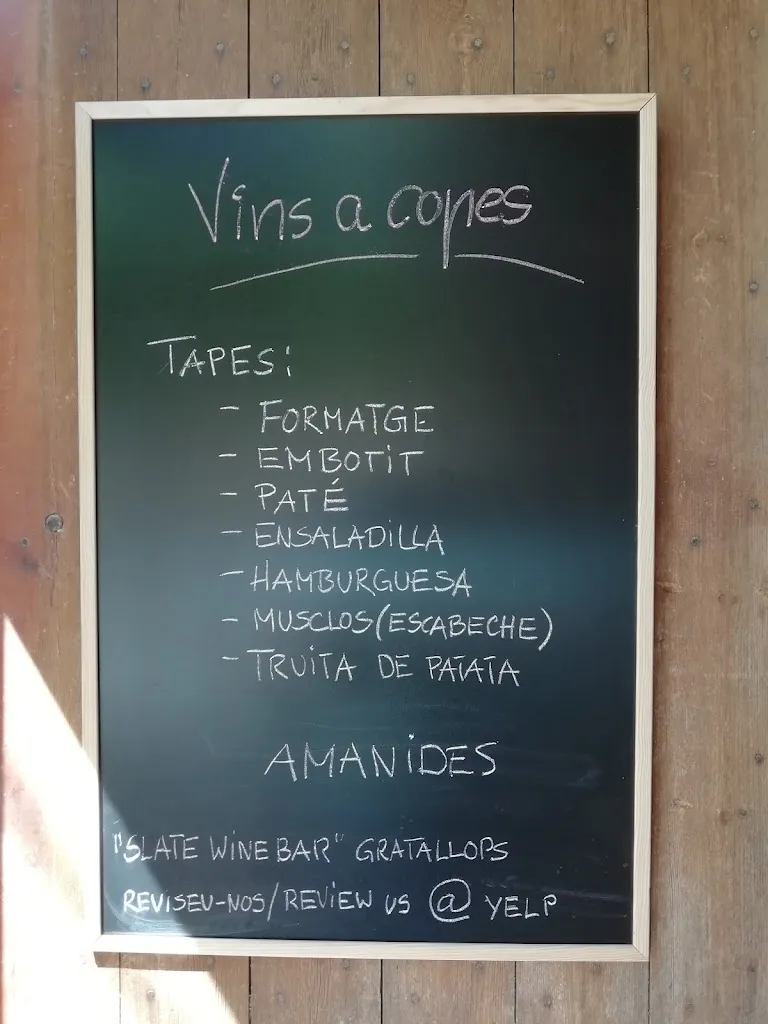 Vins a copes
TAPES:
- FORMATGE
- EMBOTIT
- PATÉ
- ENSALADILLA
- HAMBURGUESA
- MUSCLOS(ESCABECHE)
- TRUITA DE PATATA
AMANIDES
"SLATE WINE BAR" GRATALLOPS
REVISEU-NOS/REVIEW US @ YELP